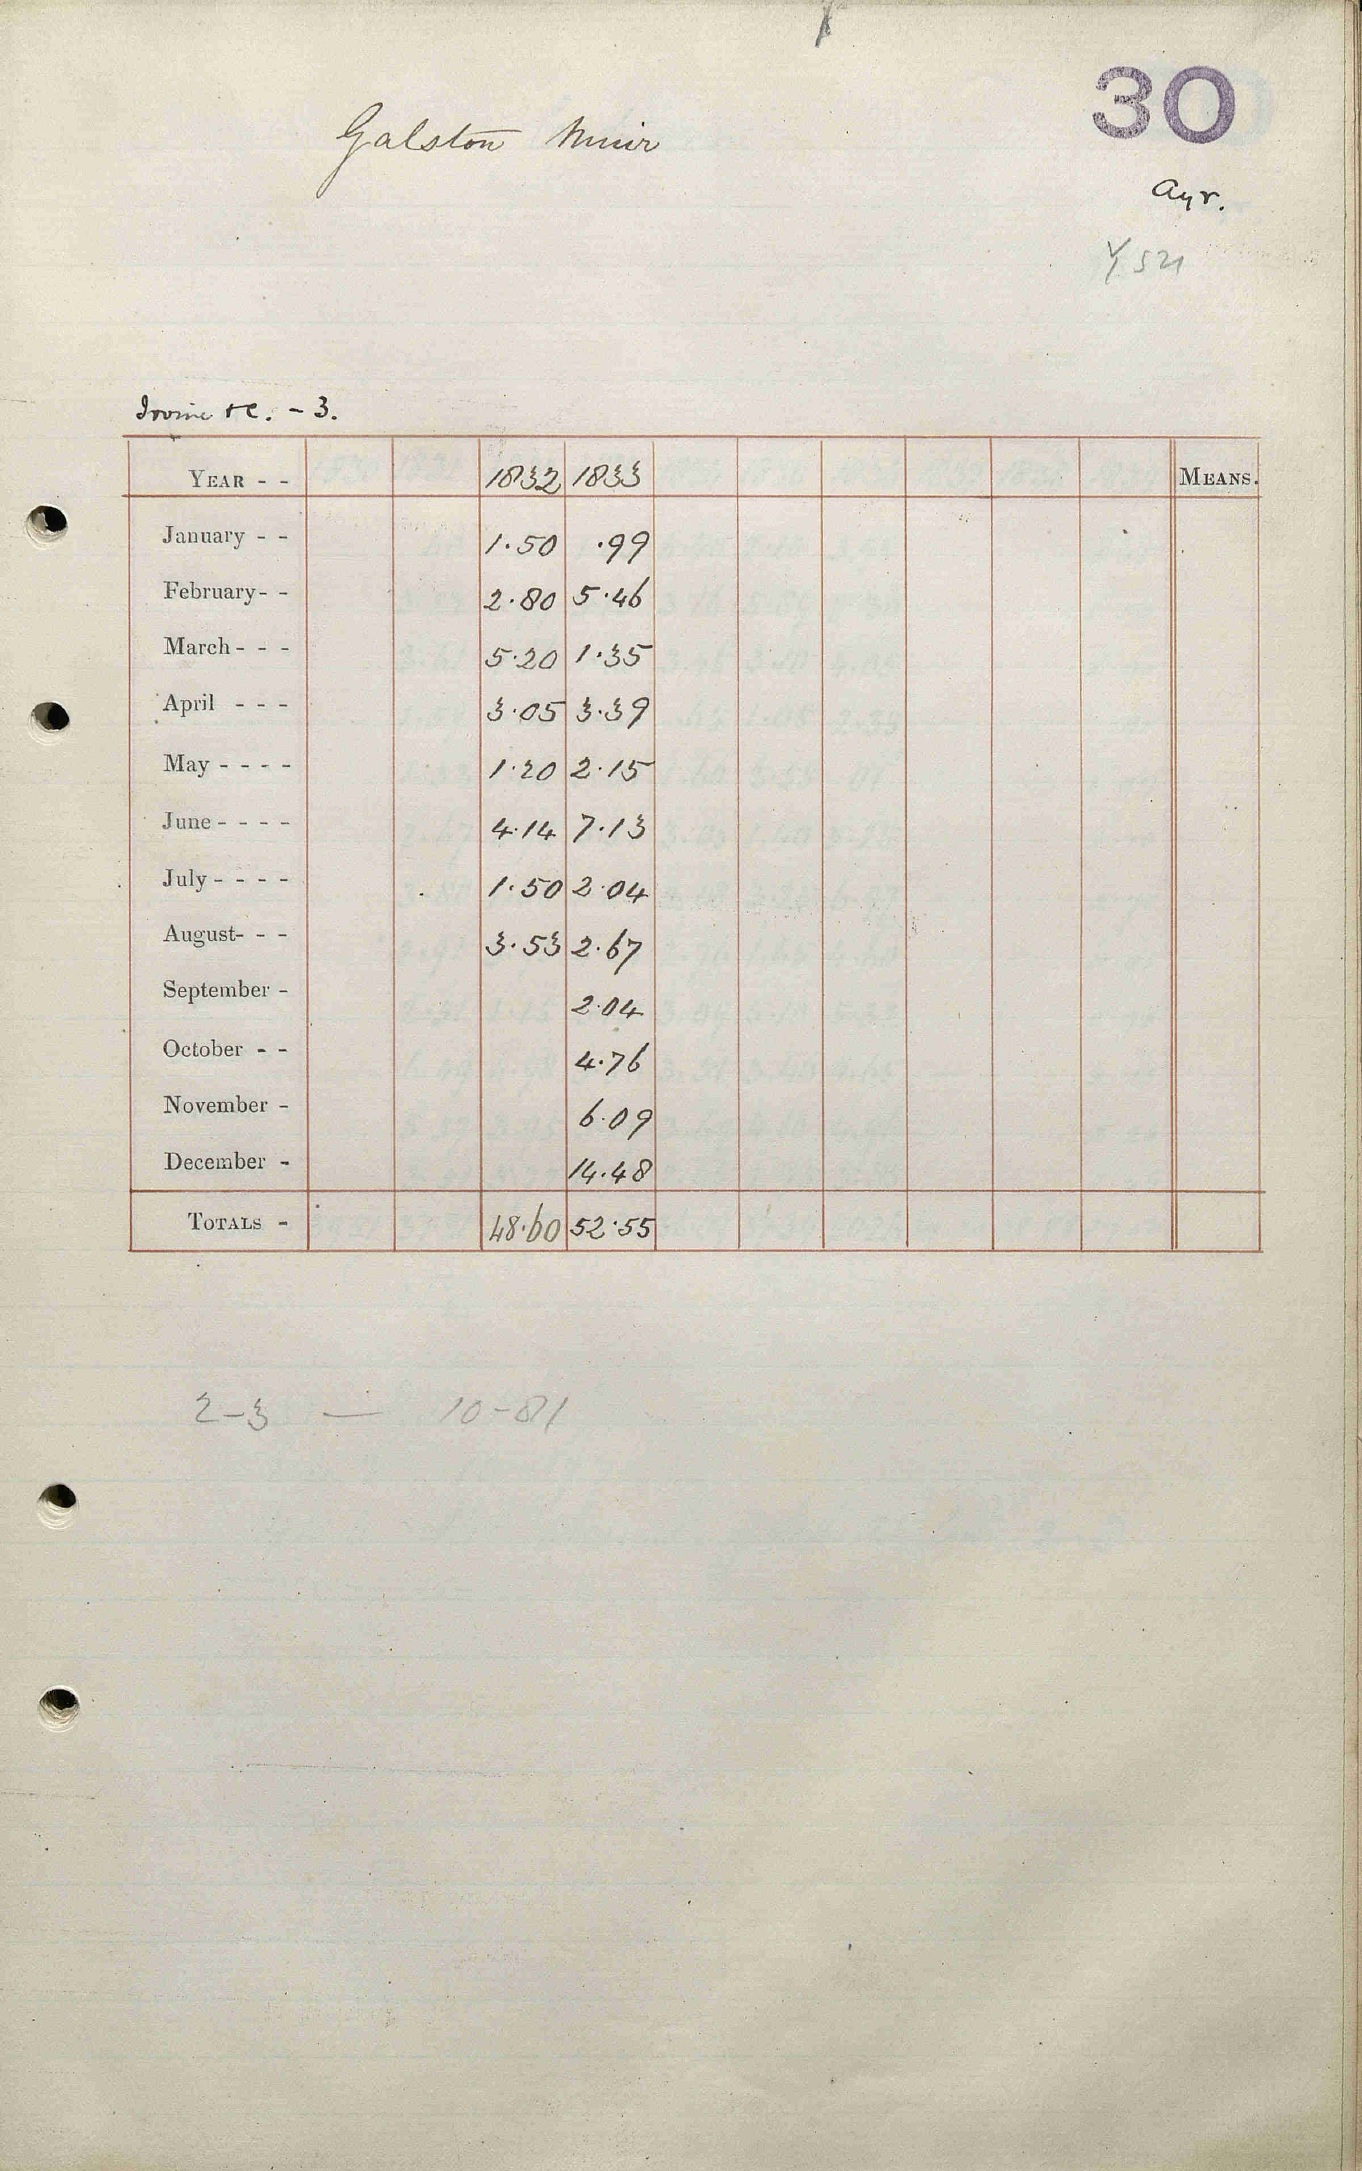 30
Galston Muir
Ayr.
Irvine &c. - 3.
YEAR - - 1832 1833 MEANS.
January - - 1.50 .99
February- - 2.80 5.46
March - - - 5.20 1.35
April - - - 3.05 3.39
May - - - - 1.20 2.15
June - - - - 4.14 7.13
July - - - - 1.50 2.04
August- - - 3.53 2.67
September - 2.04
October - - 4.76
November - 6.09
December - 14.48
TOTALS - 48.60 52.55
2-3 — 10-81